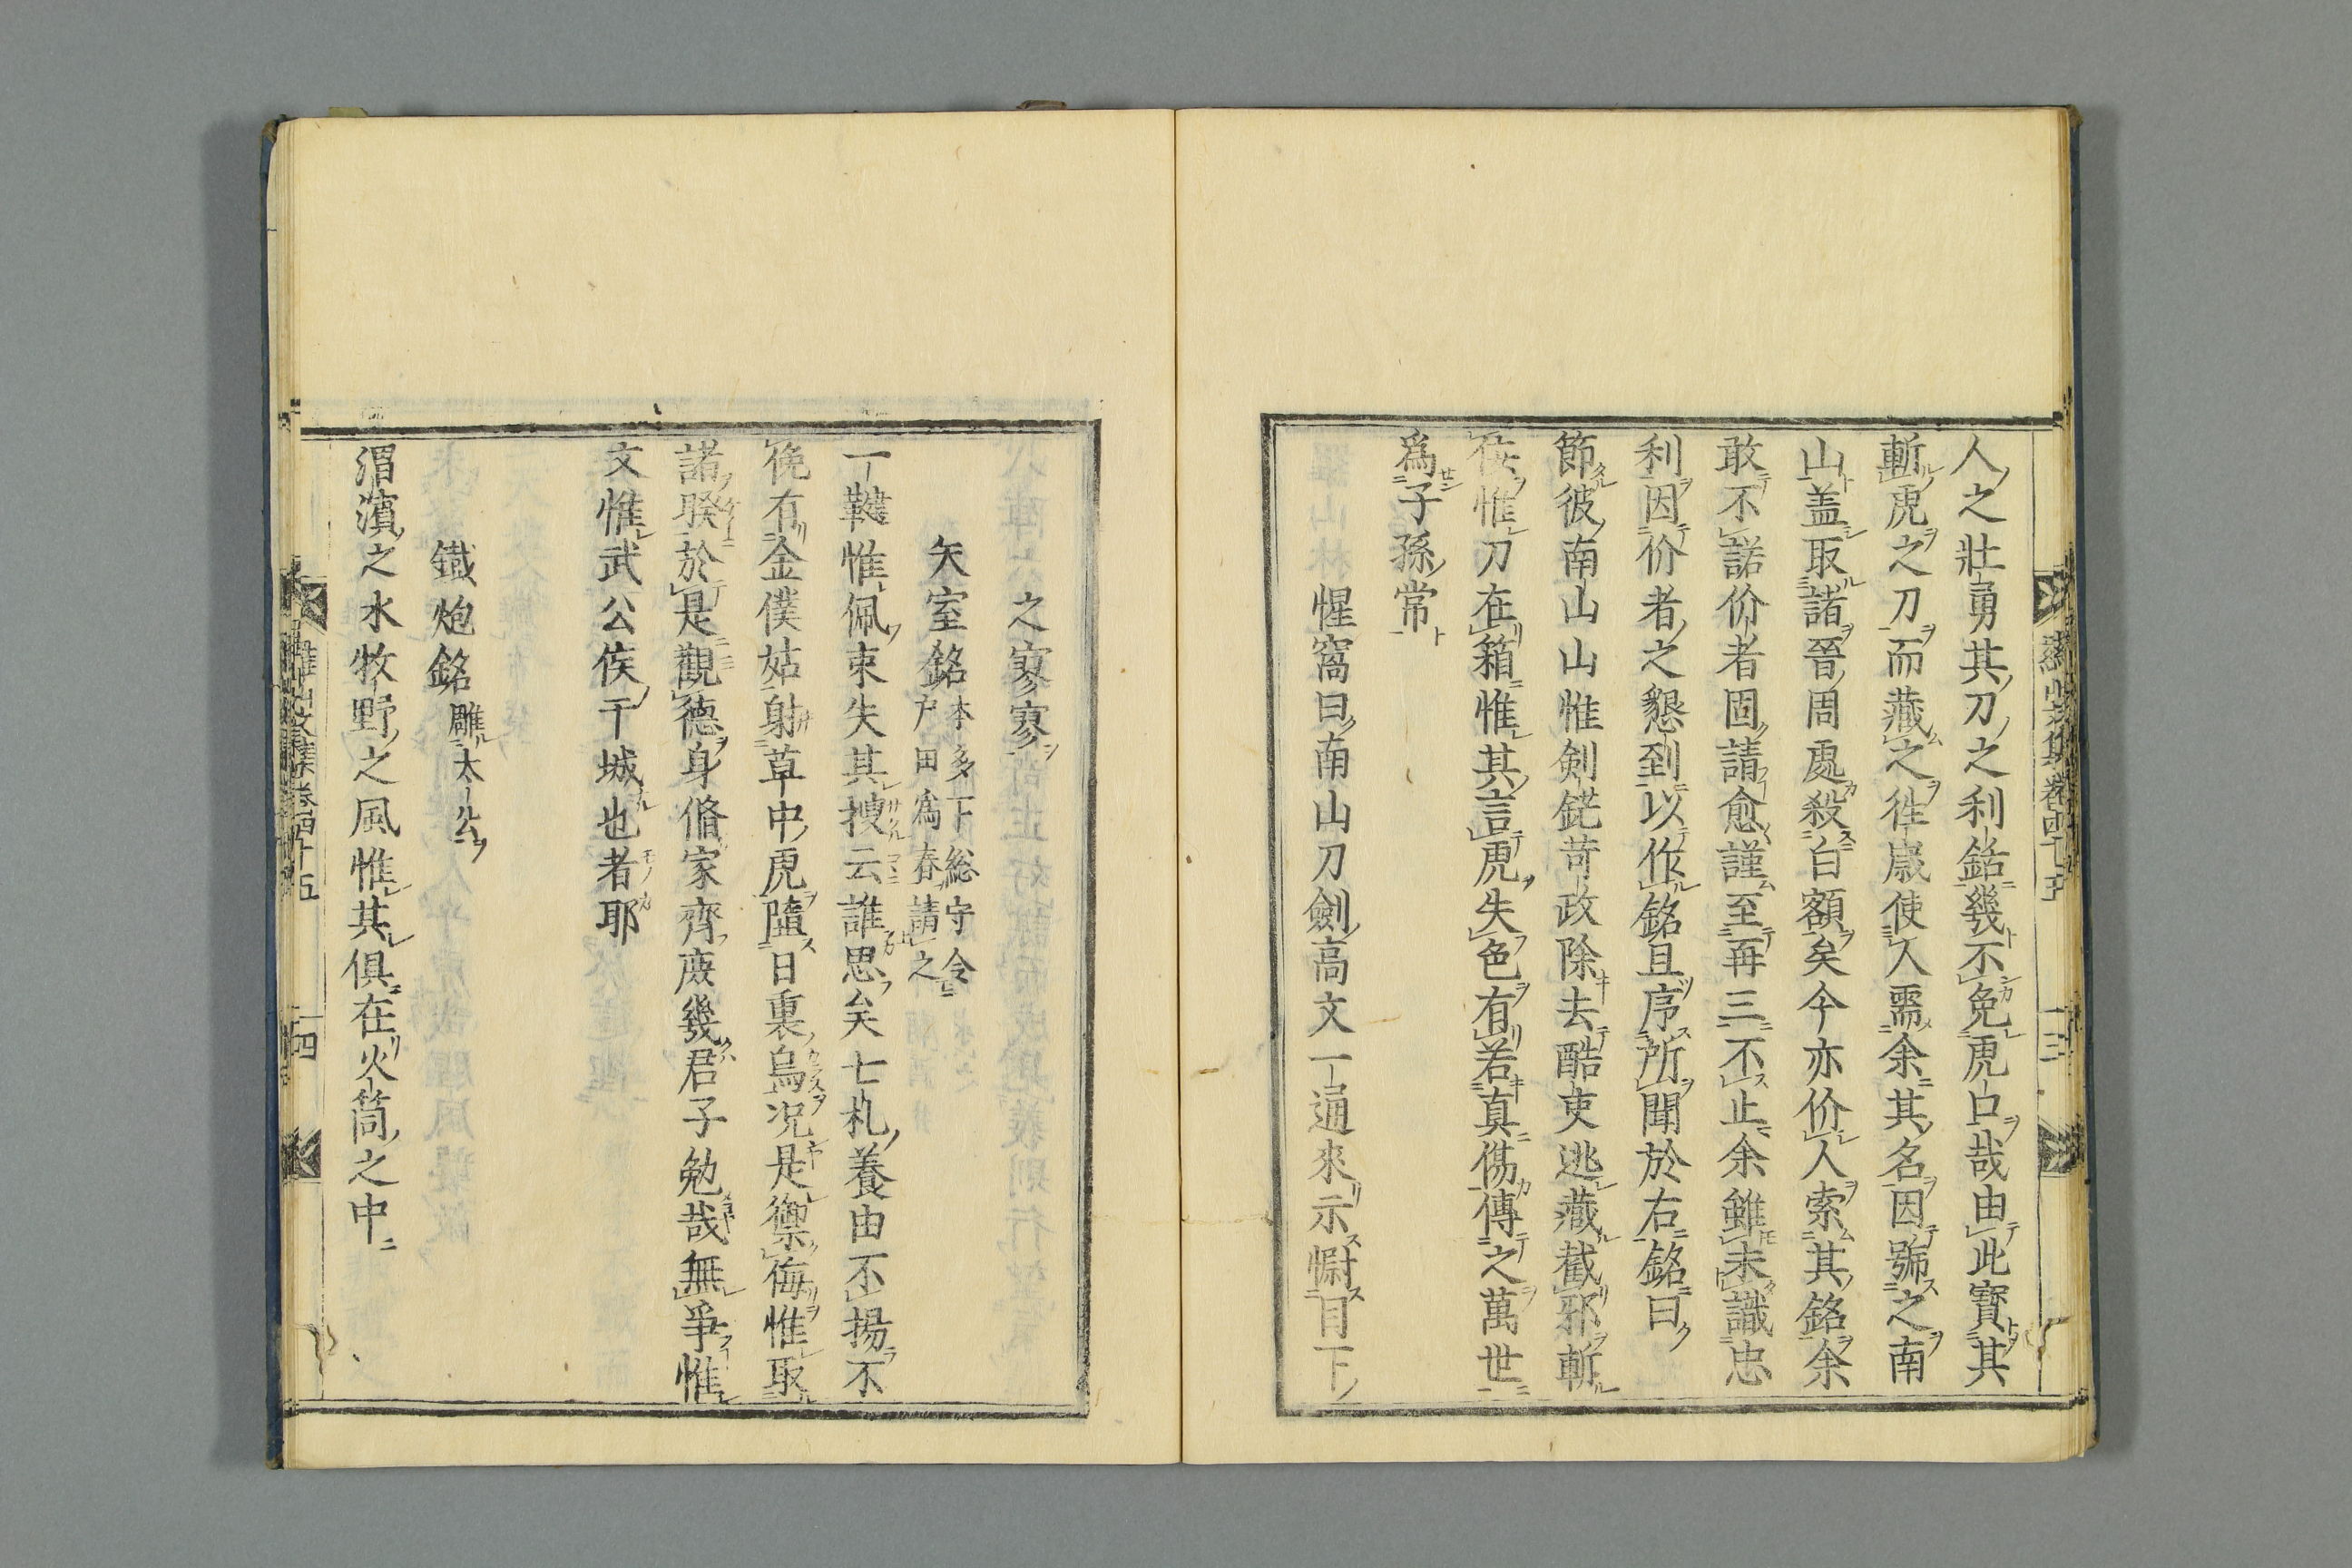 人之壯勇其刀之利銘幾不免虎口哉由此寶其
斬虎之刀而藏之徃歳使人需余其名因號之南
山盖取諸晉周處殺白額矣今亦价人索其銘余
敢不諾价者固請愈謹至再三不止余雖未識忠
利因价者之懇到以作銘且序所聞於右銘曰
節彼南山山惟剣鋩苛政除去酷吏逃藏截邪斬
佞惟刀在箱惟其言虎失色有若真傷傳之萬世
爲子孫常
惺窩曰南山刀劍高文一通來示慰目下
之寥寥
矢室銘 本多下総守令戸田爲春請之
一鞬惟佩束矢其搜云誰思矣七札養由不揚不
俛有金僕姑射草中虎隨日裏烏况是禦侮惟取
諸睽於是觀德身脩家齊庻幾君子勉哉無爭惟
文惟武公侯干城也者耶
鐵炮銘 雕太公
渭濱之水牧野之風惟其俱在火筒之中
羅山文集卷四十五
三
羅山文集卷四十五
四